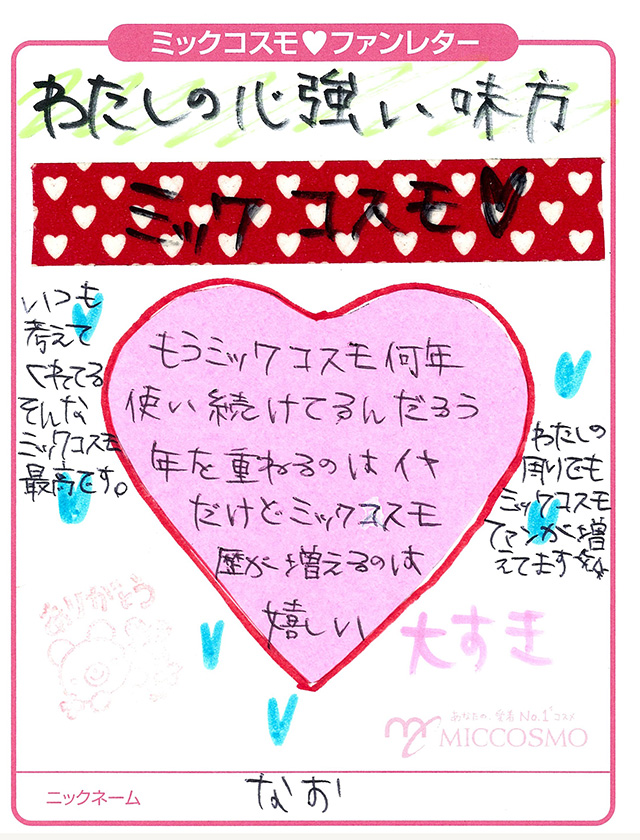 ミックコスモ♥ファンレター
わたしの心強い味方
ミックコスモ♥
いつも
考えて
くれてる
そんな
ミックコスモ
最高です。
もうミックコスモ何年
使い続けてるんだろう
年を重ねるのはイヤ
だけどミックコスモ
歴が増えるのは
嬉しい
わたしの
周りでも
ミックコスモ
ファンが増
えてます
ありがとう
大すき
あなたの、愛着No.1コスメ
MICCOSMO
ニックネーム
なお